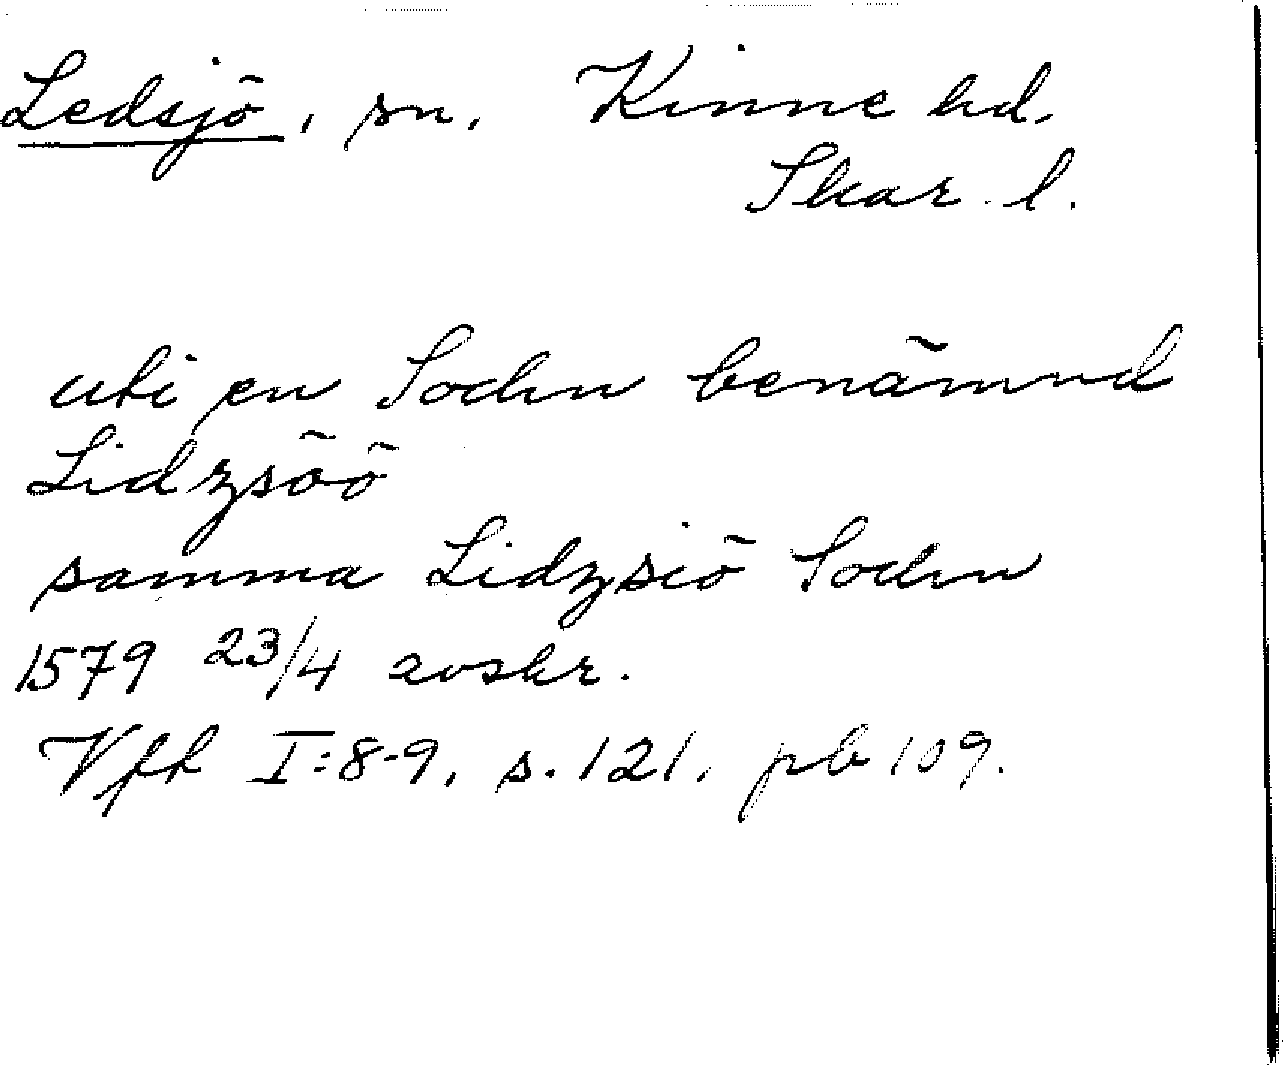 Ledsjö, sn. Kinne hd.
Skar. l.
uti en Sochn benämnd
Lidzsöö
samma Lidzsiö Sochn
1579 23/4 avskr.
Vfh I:8-9, s. 121, pb 109.